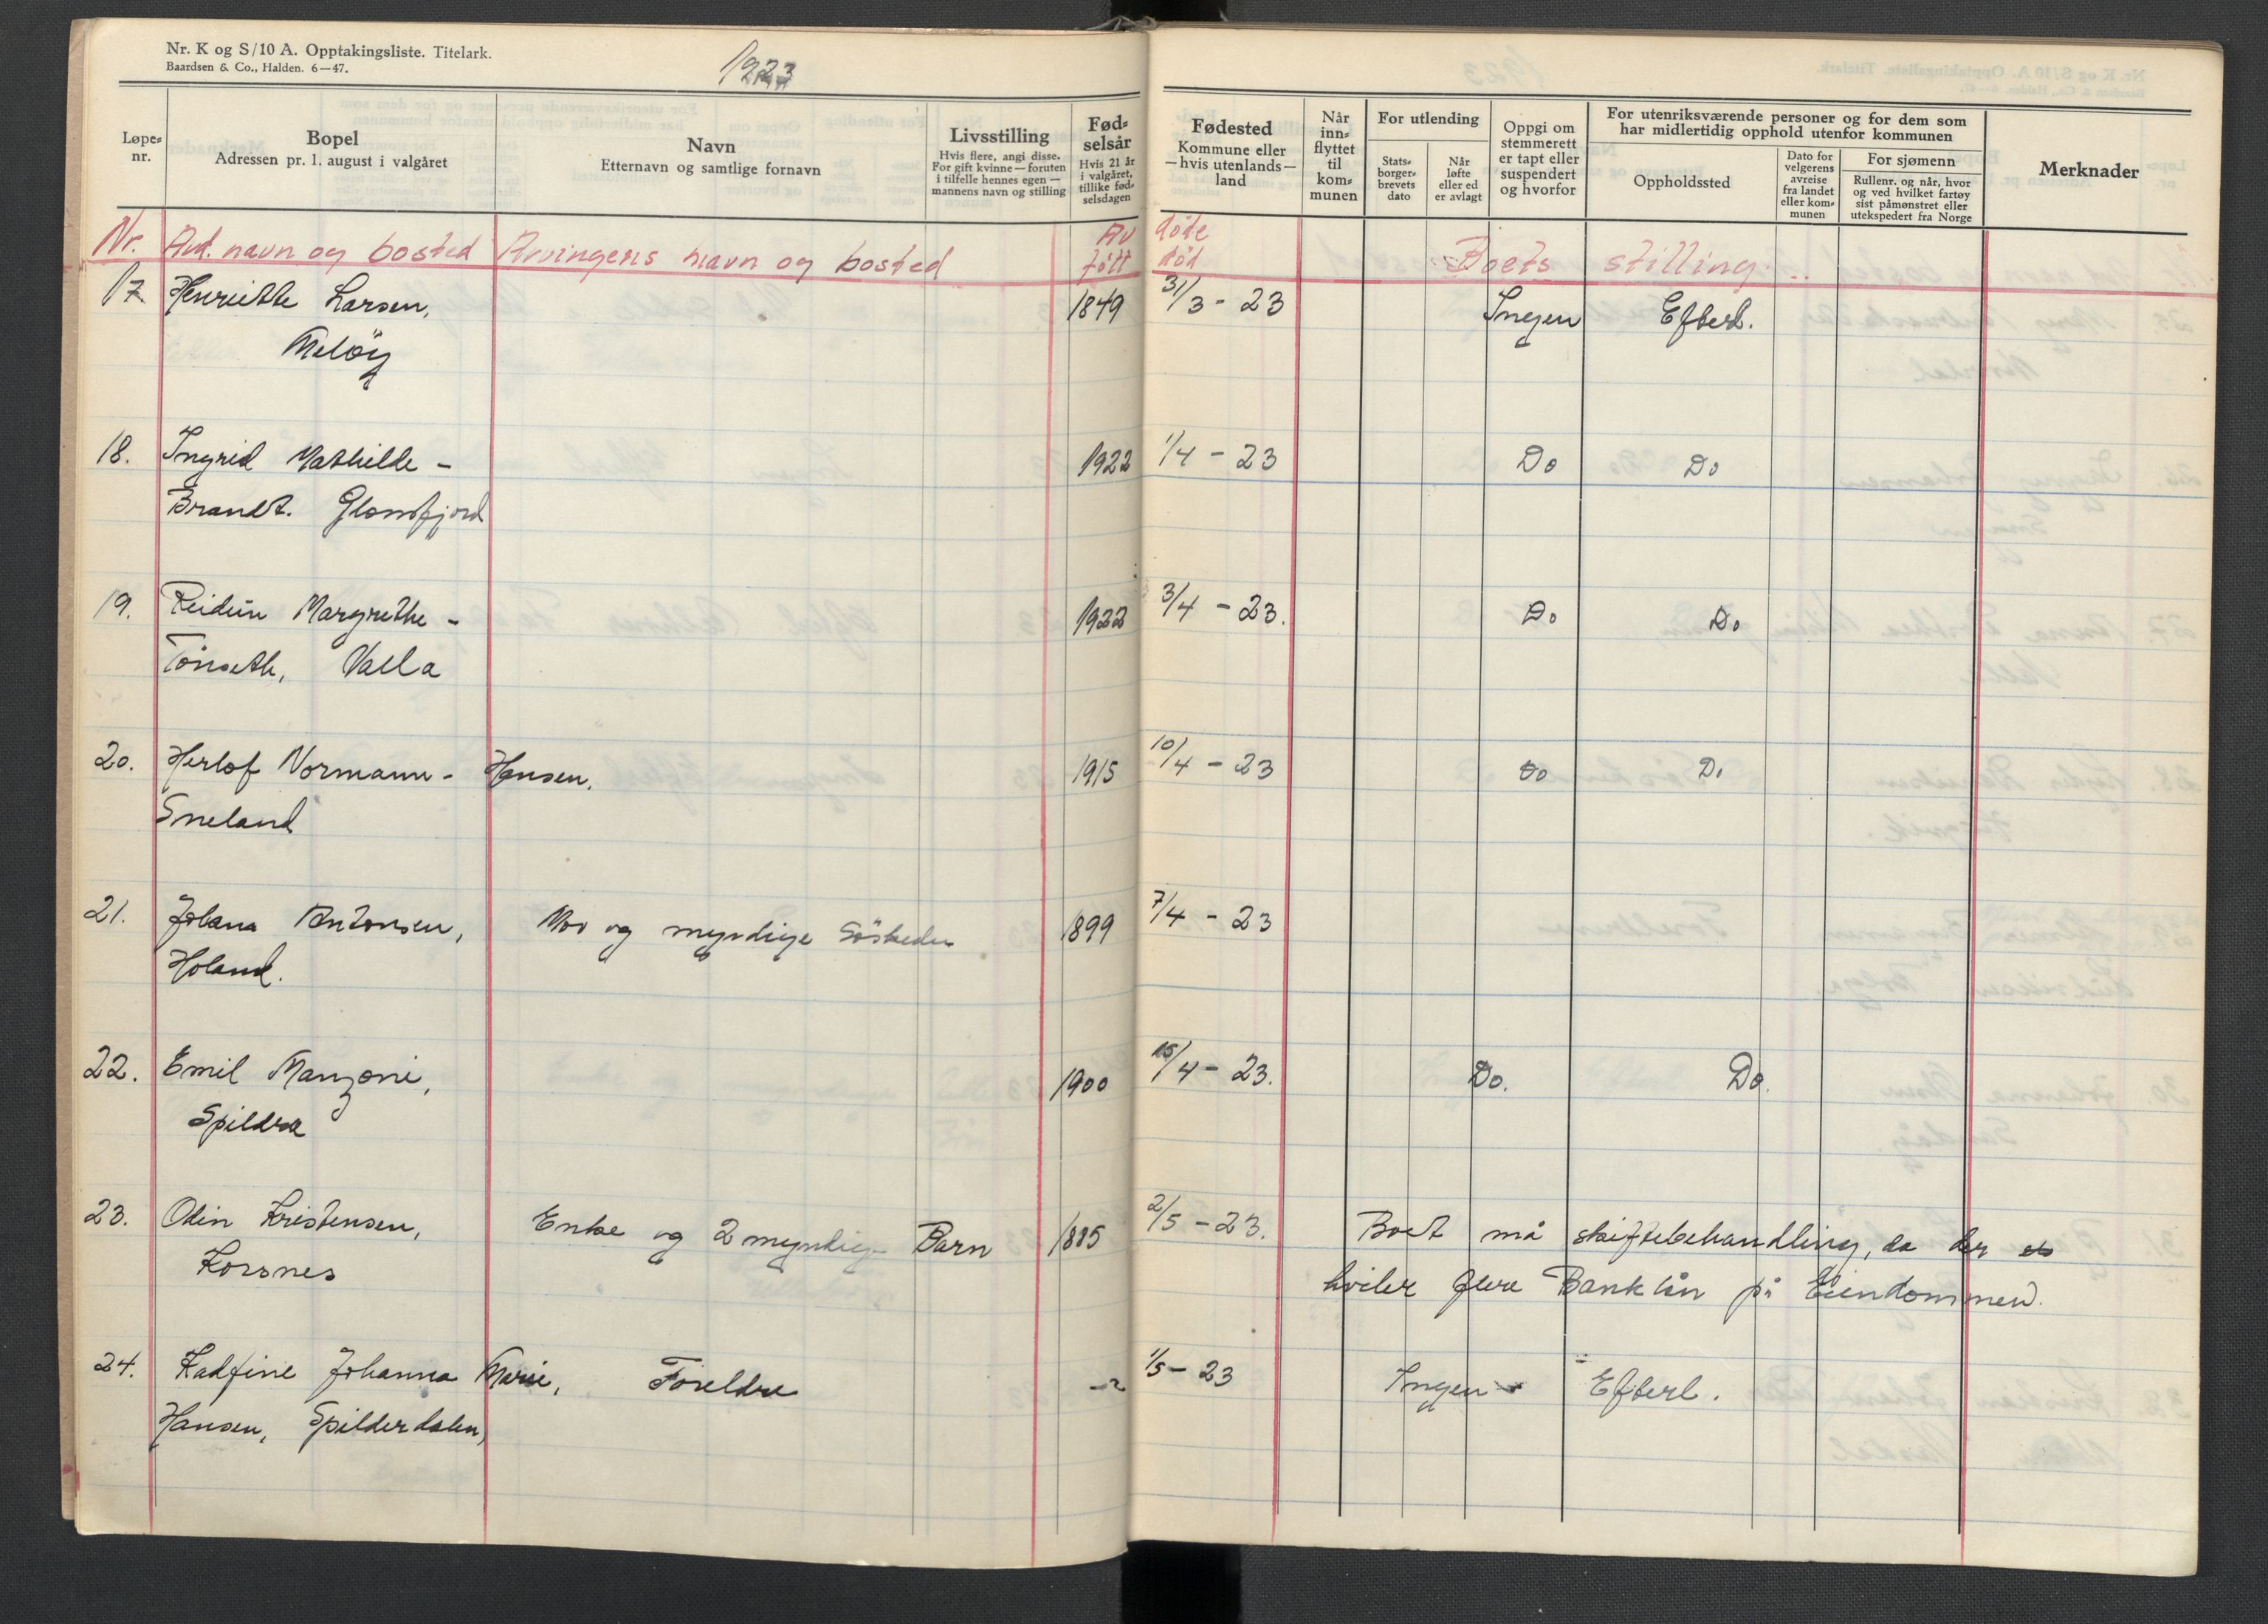 Nr. K og S/10 A. Opptakingsliste. Titelark.
Baardsen & Co., Halden. 6—47.
1923
Løpe-nr.
Bopel
Adressen pr. 1. august i valgåret
Navn
Etternavn og samtlige fornavn
Livsstilling
Hvis flere, angi disse.
For gift kvinne — foruten
i tilfelle hennes egen —
mannens navn og stilling
Fød-
selsår
Hvis 21 år
i valgåret,
tillike fød-
selsdagen
Fødested
Kommune eller
— hvis utenlands —
land
Når
inn-
flyttet
til
kom-
munen
For utlending
Stats-
borger-
brevets
dato
Når
løfte
eller ed
er avlagt
Oppgi om
stemmerett
er tapt eller
suspendert
og hvorfor
For utenriksværende personer og for dem som
har midlertidig opphold utenfor kommunen
Oppholdssted
Dato for
velgerens
avreise
fra landet
eller kom-
munen
For sjømenn
Rullenr. og når, hvor
og ved hvilket fartøy
sist påmønstret eller
utekspedert fra Norge
Merknader
Nr. Avd. navn og bosted Arvingens navn og bosted Av døde
født død Boets stilling
17 Henriette Larsen, 1849 31/3 - 23 Ingen Efterl.
Meløy
18. Ingrid Mathilde - 1922 1/4 - 23 Do Do
Brandt. Glomfjord
19. Reidun Margrethe - 1922 3/4 - 23. Do Do
Tönseth, Valla
20. Herlof Normann - Hansen. 1915 10/4 - 23 Do Do
Sneland
21. Antonsen, Mor og myndige Söskeder 1899 7/4 - 23
Holand.
22. Emil Manzoni, 1900 15/4 - 23. Do. Do.
Spildra
23. Odin Kristensen, Enke og 2 myndige Barn 1885 2/5 - 23. Boet må skiftebehandling, da der
Korsnes hviler flere Banklån på Eiendommen.
24. Kadfine Johanna Marie, Foreldre 1/5 - 23 Ingen Efterl.
Hansen, Spilderdalen,